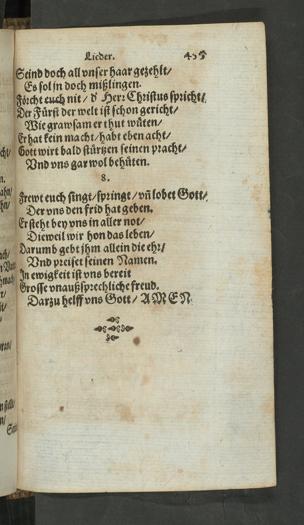 Lieder. 455
Seind doch all vnser haar gezehlt/
Es sol in doch mißlingen.
Förcht euch nit/ d' Herr Christus spricht/
Der Fürst der welt ist schon gericht/
Wie grawsam er thut wüten/
Er hat kein macht/ habt eben acht/
Gott wirt bald stürtzen seinen pracht/
Vnd vns gar wol behüten.
8.
Frewt euch singt/ springt/ vñ lobet Gott/
Der vns den frid hat geben.
Er steht bey vns in aller not/
Dieweil wir hon das leben/
Darumb gebt jhm allein die ehr/
Vnd preiset seinen Namen.
In ewigkeit ist vns bereit
Grosse vnaußsprechliche freud.
Darzu helff vns Gott/ AMEN